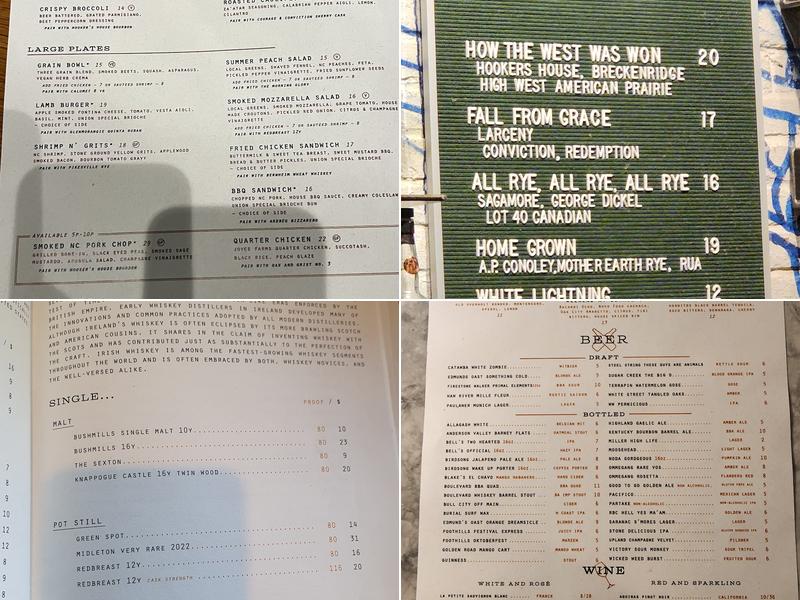 CRISPY BROCCOLI 14
BEER BATTERED, GRATED PARMIGIANO,
BEET PEPPERCORN DRESSING
PAIR WITH HOOKER'S HOUSE BOURBON
ZA'ATAR SEASONING, CALABRIAN PEPPER AIOLI, LEMON,
CILANTRO
PAIR WITH COURAGE & CONVICTION SHERRY CASK
LARGE PLATES
GRAIN BOWL* 15
THREE GRAIN BLEND, SMOKED BEETS, SQUASH, ASPARAGUS,
VEGAN HERB CREMA
ADD FRIED CHICKEN - 7 OR SAUTEED SHRIMP - 8
PAIR WITH CALUMET 8 YR
LAMB BURGER* 19
APPLE SMOKED FONTINA CHEESE, TOMATO, VESTA AIOLI,
BASIL, MINT, UNION SPECIAL BRIOCHE
- CHOICE OF SIDE
PAIR WITH GLENMORANGIE QUINTA RUBAN
SHRIMP N' GRITS* 18 GF
NC SHRIMP, STONE GROUND YELLOW GRITS, APPLEWOOD
SMOKED BACON, BOURBON TOMATO GRAVY
PAIR WITH PIKESVILLE RYE
SUMMER PEACH SALAD 15 V
LOCAL GREENS, SHAVED FENNEL, NC PEACHES, FETA,
PICKLED PEPPER VINAIGRETTE, FRIED SUNFLOWER SEEDS
ADD FRIED CHICKEN - 7 OR SAUTEED SHRIMP - 8
PAIR WITH THE MORNING GLORY
SMOKED MOZZARELLA SALAD 16 V
LOCAL GREENS, SMOKED MOZZARELLA, GRAPE TOMATO, HOUSE
MADE CROUTONS, PICKLED RED ONION, CITRUS & CHAMPAGNE
VINAIGRETTE
ADD FRIED CHICKEN - 7 OR SAUTEED SHRIMP - 8
PAIR WITH REDBREAST 12Y
FRIED CHICKEN SANDWICH 17
BUTTERMILK & SWEET TEA BREAST, SWEET MUSTARD BBQ,
BREAD & BUTTER PICKLES, UNION SPECIAL BRIOCHE
- CHOICE OF SIDE
PAIR WITH BERNHEIM WHEAT WHISKEY
BBQ SANDWICH* 16
CHOPPED NC PORK, HOUSE BBQ SAUCE, CREAMY COLESLAW
UNION SPECIAL BRIOCHE BUN
- CHOICE OF SIDE
AVAILABLE 5P-10P
SMOKED NC PORK CHOP* 29 GF
GRILLED BONE-IN, BLACK EYED PEAS, SMOKED SAGE
MUSTARD, ARUGULA SALAD, CHAMPAGNE VINAIGRETTE
PAIR WITH HOOKER'S HOUSE BOURBON
QUARTER CHICKEN 22 GF
JOYCE FARMS QUARTER CHICKEN, SUCCOTASH,
BLACK RICE, PEACH GLAZE
PAIR WITH OAK AND GRIST NO. 3
HOW THE WEST WAS WON 20
HOOKERS HOUSE, BRECKENRIDGE
HIGH WEST AMERICAN PRAIRIE
FALL FROM GRACE 17
LARCENY
CONVICTION, REDEMPTION
ALL RYE, ALL RYE, ALL RYE 16
SAGAMORE, GEORGE DICKEL
LOT 40 CANADIAN
HOME GROWN 19
A.P. CONOLEY, MOTHER EARTH RYE, RUA
WHITE LIGHTNING 12
BRITISH EMPIRE. EARLY WHISKEY DISTILLERS IN IRELAND DEVELOPED MANY OF
THE INNOVATIONS AND COMMON PRACTICES ADOPTED BY ALL MODERN DISTILLERIES.
ALTHOUGH IRELAND'S WHISKEY IS OFTEN ECLIPSED BY ITS MORE BRAWLING SCOTCH
AND AMERICAN COUSINS, IT SHARES IN THE CLAIM OF INVENTING WHISKEY WITH
THE SCOTS AND HAS CONTRIBUTED JUST AS SUBSTANTIALLY TO THE PERFECTION OF
THE CRAFT. IRISH WHISKEY IS AMONG THE FASTEST-GROWING WHISKEY SEGMENTS
THROUGHOUT THE WORLD AND IS OFTEN EMBRACED BY BOTH, WHISKEY NOVICES, AND
THE WELL-VERSED ALIKE.
SINGLE...
PROOF / $
MALT
BUSHMILLS SINGLE MALT 10Y 80 10
BUSHMILLS 16Y 80 23
THE SEXTON 80 9
KNAPPOGUE CASTLE 16Y TWIN WOOD 80 20
POT STILL
GREEN SPOT 80 14
MIDLETON VERY RARE 2022 80 31
REDBREAST 12Y 80 16
REDBREAST 12Y CASK STRENGTH 116 20
BEER
DRAFT
CATAWBA WHITE ZOMBIE WITBIER 5
EDMUNDS OAST SOMETHING COLD BLONDE ALE 7
FIRESTONE WALKER PRIMAL ELEMENTS BBA SOUR 10
HAW RIVER MILLE FLEUR RUSTIC SAISON 6
PAULANER MUNICH LAGER LAGER 6
STEEL STRING THESE GUYS ARE ANIMALS KETTLE SOUR 6
SUGAR CREEK THE BIG O BLOOD ORANGE IPA 5
TERRAPIN WATERMELON GOSE GOSE 5
WHITE STREET TANGLED OAKS AMBER 5
WW PERNICIOUS IPA 6
BOTTLED
ALLAGASH WHITE BELGIAN WIT 6
ANDERSON VALLEY BARNEY FLATS OATMEAL STOUT 6
BELL'S TWO HEARTED 16oz IPA 7
BELL'S OFFICIAL 16oz HAZY IPA 7
BIRDSONG JALAPENO PALE ALE 16oz PALE ALE 8
BIRDSONG WAKE UP PORTER 16oz COFFEE PORTER 8
BLAKE'S EL CHAVO MANGO HABANERO HARD CIDER 6
BOULEVARD BBA QUAD BBA QUAD 11
BOULEVARD WHISKEY BARREL STOUT BA IMP STOUT 10
BULL CITY OFF MAIN CIDER 6
BURIAL SURF WAX IPA 6
EDMUND'S OAST ORANGE DREAMSICLE BLONDE ALE 6
FOOTHILLS FESTIVAL EXPRESS JUICY IPA 6
FOOTHILLS OKTOBERFEST MARZEN 5
GOLDEN ROAD MANGO CART MANGO WHEAT 5
GUINNESS STOUT 6
HIGHLAND GAELIC ALE AMBER ALE 5
KENTUCKY BOURBON BARREL ALE BBA ALE 10
MILLER HIGH LIFE LAGER 2
MOOSEHEAD LIGHT LAGER 5
NODA GORDGEOUS 16oz PUMPKIN ALE 10
OMMEGANG RARE VOS AMBER ALE 8
OMMEGANG ROSETTA FLANDERS RED 8
GOOD TO GO GOLDEN ALE NON ALCOHOLIC
PACIFICO MEXICAN LAGER 5
PARTAKE NON-ALCOHOLIC
RBC HELL YES MA'AM GOLDEN ALE 6
SARANAC S'MORES LAGER LAGER 5
STONE DELICIOUS GLUTEN REDUCED IPA 6
UPLAND CHAMPAGNE VELVET PILSNER 5
VICTORY SOUR MONKEY SOUR TRIPEL 6
WICKED WEED BURST FRUITY SOUR 6
WINE
WHITE AND ROSÉ
RED AND SPARKLING
LA PETITE SAUVIGNON BLANC FRANCE 8/28
CALIFORNIA 10/36